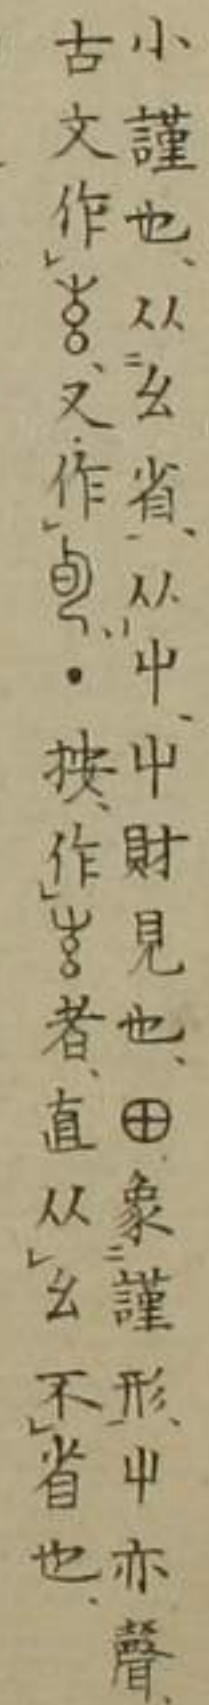 小謹也从幺省从屮屮財見也⊕象謹形屮亦聲
古文作又作・按作者直从幺不省也